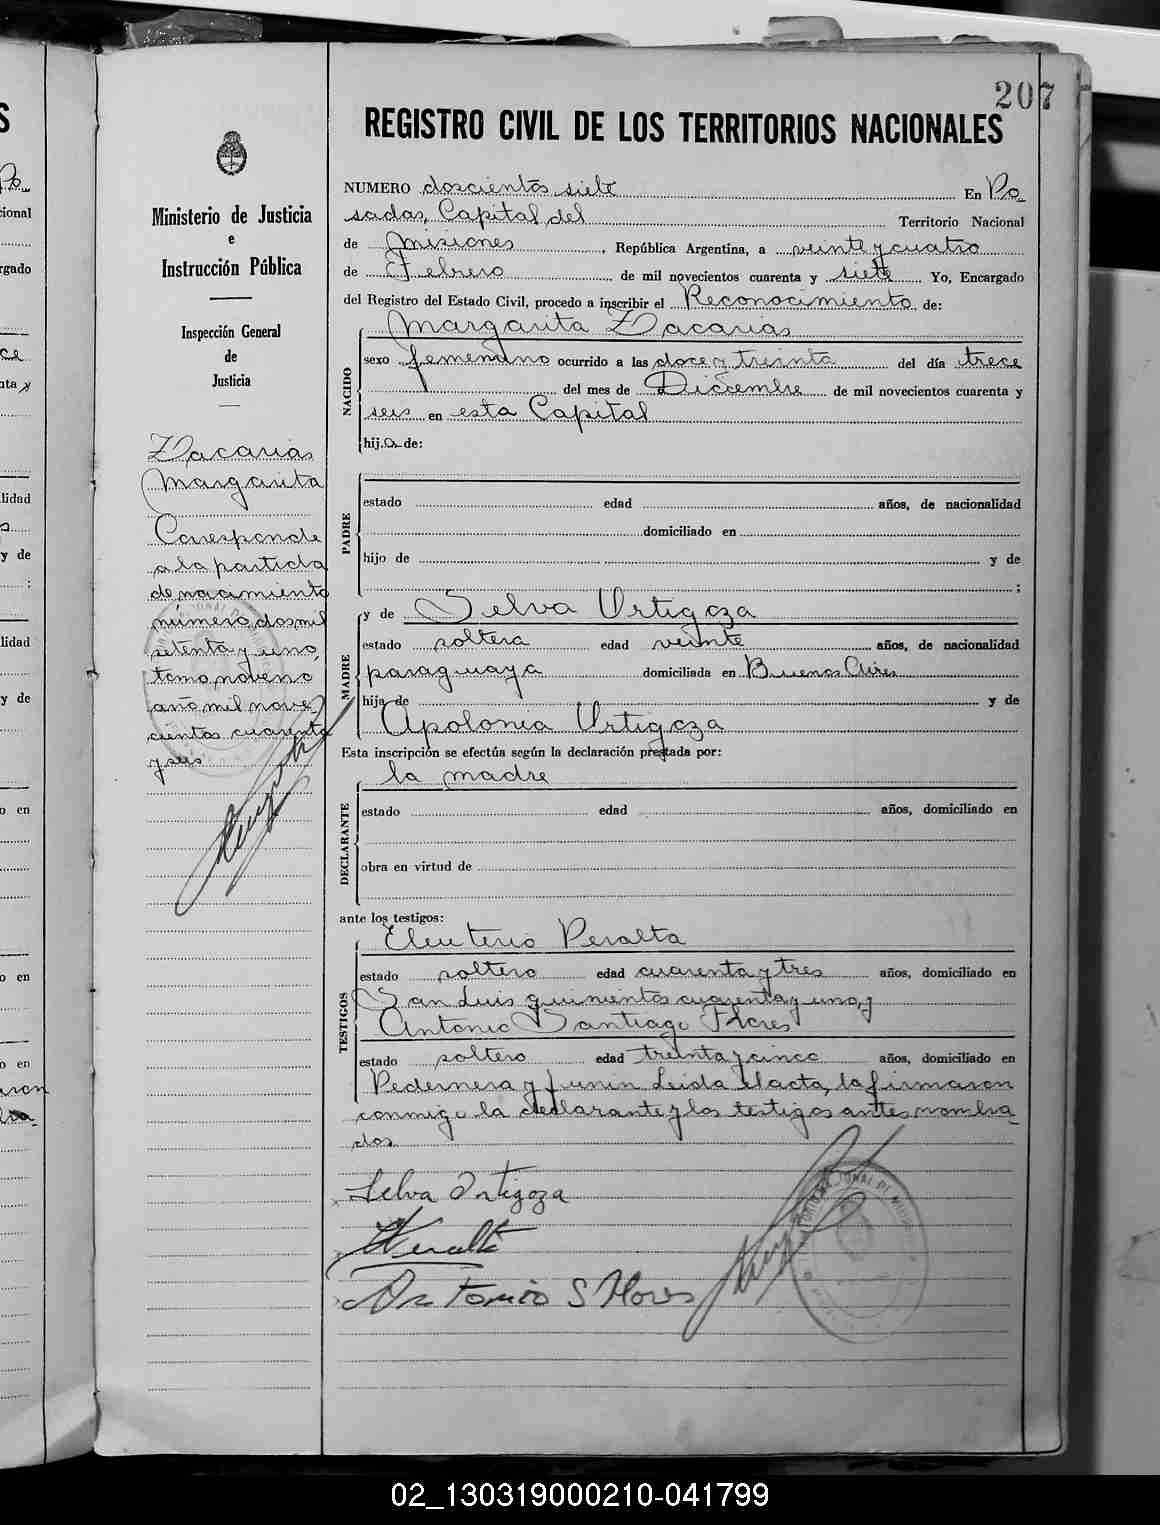 207
REGISTRO CIVIL DE LOS TERRITORIOS NACIONALES
Ministerio de Justicia
e
Instrucción Pública
Inspección General
de
Justicia
Zacarias
Margarita
Corresponde
a la partida
de nacimiento
número dos mil
setenta y uno,
tomo noveno
año mil nove-
cientos cuarenta
y seis
NUMERO doscientos siete En Po
sadas, Capital del Territorio Nacional
de Misiones, República Argentina, a veinte y cuatro
de Febrero de mil novecientos cuarenta y siete Yo, Encargado
del Registro del Estado Civil, procedo a inscribir el Reconocimiento de:
NACIDO
Margarita Zacarias
sexo femenino ocurrido a las doce y treinta del día trece
del mes de Diciembre de mil novecientos cuarenta y
seis en esta Capital
hij.a de:
PADRE
estado edad años, de nacionalidad
domiciliado en
hijo de y de
;
MADRE
y de Selva Ortigoza
estado soltera edad veinte años, de nacionalidad
paraguaya domiciliada en Buenos Aires
hija de y de
Apolonia Ortigoza
Esta inscripción se efectúa según la declaración prestada por:
la madre
DECLARANTE
estado edad años, domiciliado en
obra en virtud de
ante los testigos:
TESTIGOS
Eleuterio Peralta
estado soltero edad cuarenta y tres años, domiciliado en
San Luis quinientos cuarenta y uno, y
Antonio Santiago Flores
estado soltero edad treinta y cinco años, domiciliado en
Pedernera y Junin Leida el acta, la firmaron
conmigo la declarante y los testigos antes nombra
dos.
Selva Ortigoza
Peralta
Antonio S Flores
02_130319000210-041799